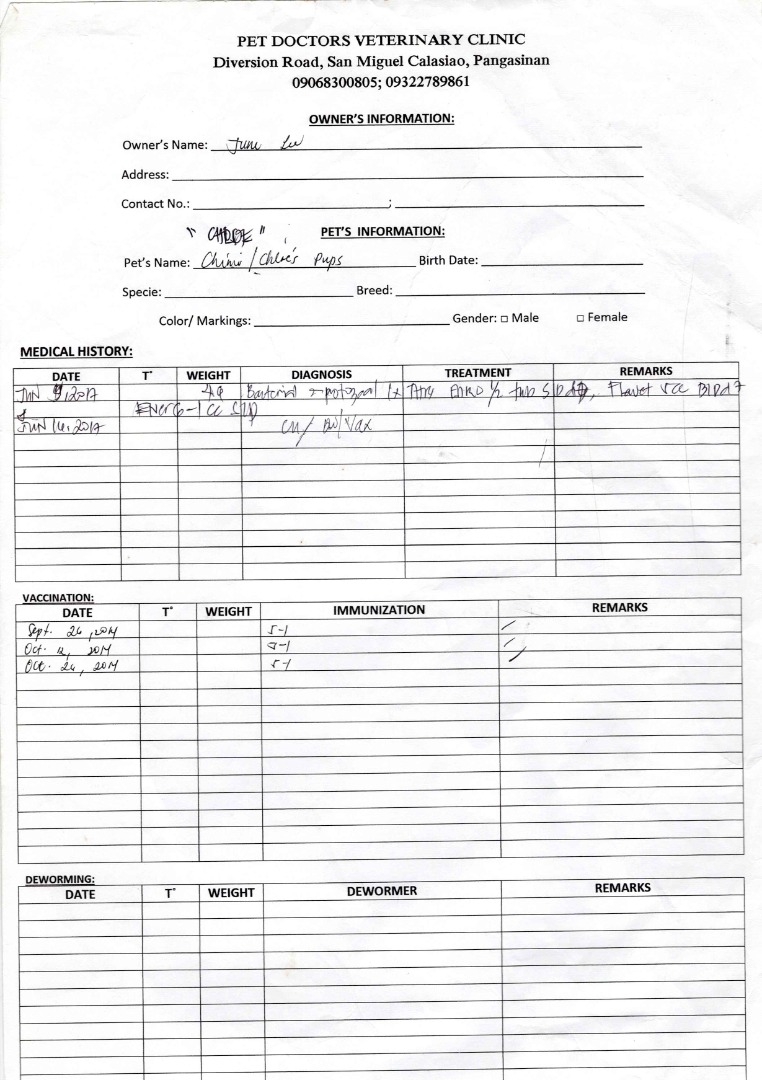 PET DOCTORS VETERINARY CLINIC
Diversion Road, San Miguel Calasiao, Pangasinan
09068300805; 09322789861
OWNER'S INFORMATION:
Owner's Name: June
Address:
Contact No.: ;
PET'S INFORMATION:
Pet's Name: Chini / Chloe's Pups Birth Date:
Specie: Breed:
Color/ Markings: Gender: □ Male □ Female
MEDICAL HISTORY:
DATE T° WEIGHT DIAGNOSIS TREATMENT REMARKS
JUN 2017 Bacterial 1/2
1 cc SID
JUN 16, 2017 /Vax
VACCINATION:
DATE T° WEIGHT IMMUNIZATION REMARKS
Sept. 26, 2014 5-1
Oct. 12, 2014 5-1
Oct. 26, 2014 5-1
DEWORMING:
DATE T° WEIGHT DEWORMER REMARKS